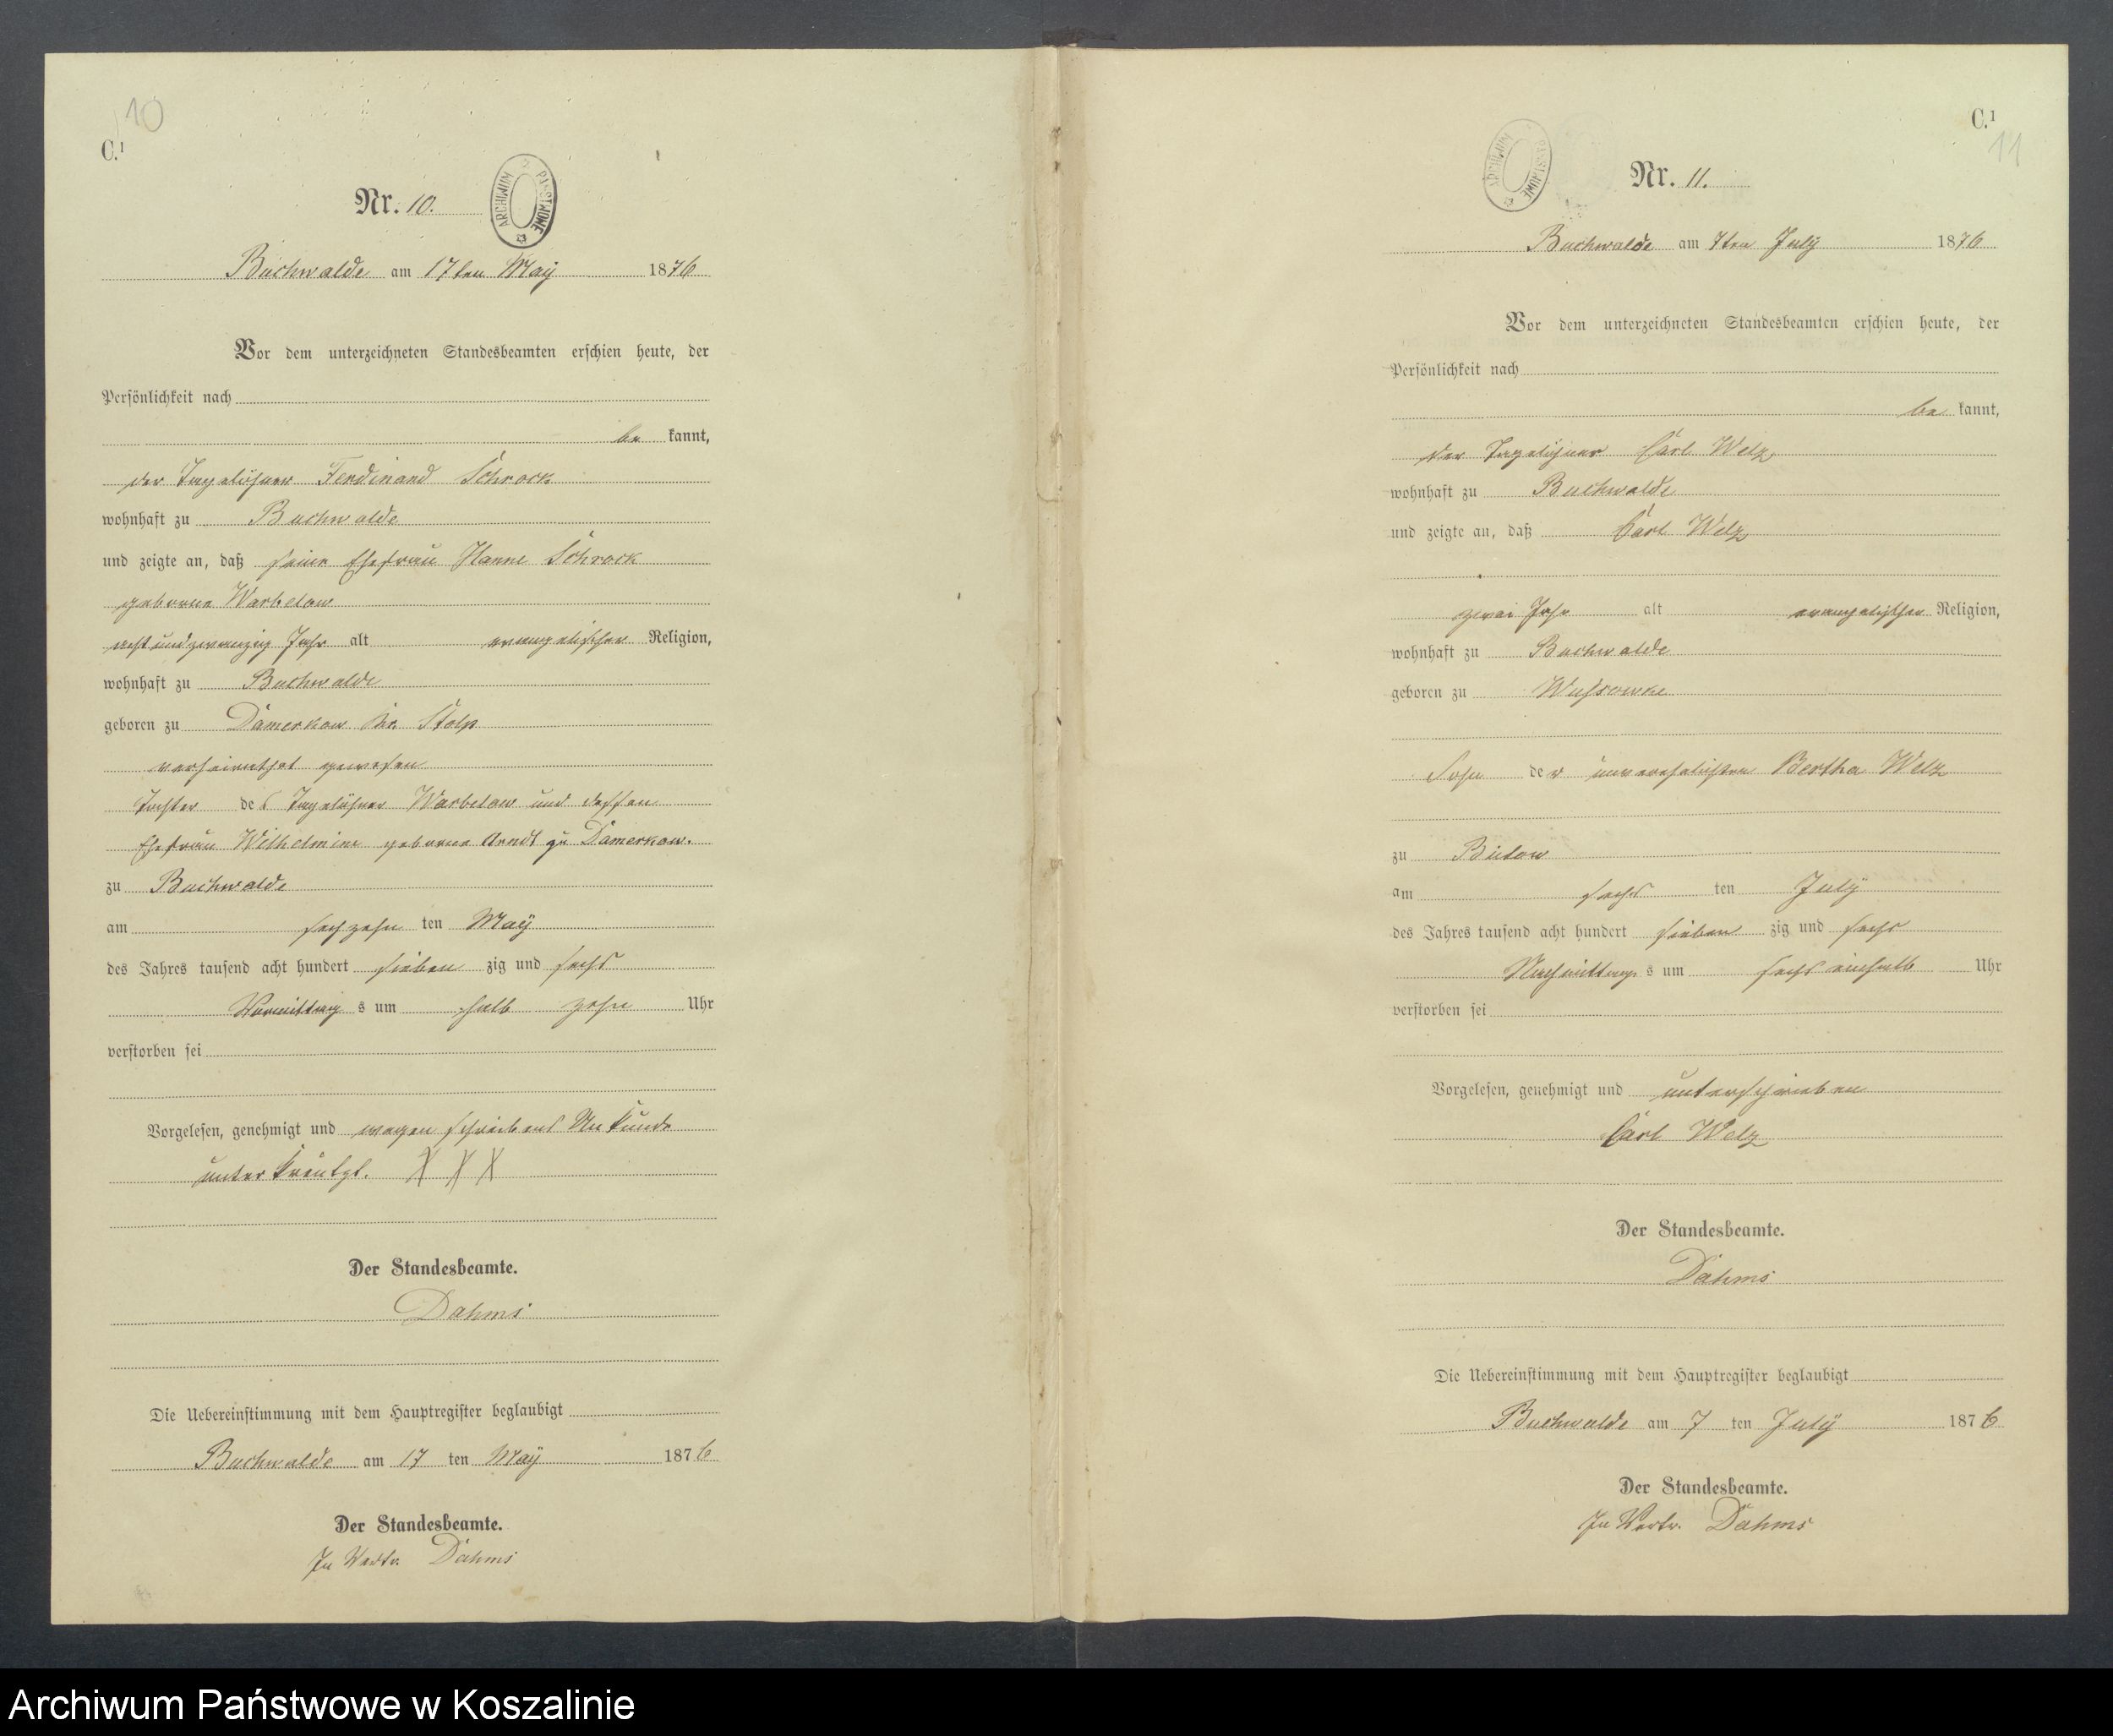 10
C.¹
ARCHIWUM PAŃSTWOWE
Nr. 10.
Buchwalde am 17ten Maÿ 1876
Vor dem unterzeichneten Standesbeamten erschien heute, der
Persönlichkeit nach
be kannt,
der Tagelöhner Ferdinand Schrock
wohnhaft zu Buchwalde
und zeigte an, daß seine Ehefrau Hanne Schrock
geborne Warbelow
acht und zwanzig Jahr alt evangelischer Religion,
wohnhaft zu Buchwalde
geboren zu Damerkow Kr. Stolp
verheirathet gewesen
Tochter des Tagelöhner Warbelow und dessen
Ehefrau Wilhelmine geborne Arndt zu Damerkow.
zu Buchwalde
am sechzehn ten Maÿ
des Jahres tausend acht hundert sieben zig und sechs
Vormittag s um halb zehn Uhr
verstorben sei
Vorgelesen, genehmigt und wegen schreibens Unkunde
unterkreutzt. X X X
Der Standesbeamte.
Dahms
Die Uebereinstimmung mit dem Hauptregister beglaubigt
Buchwalde am 17 ten Maÿ 1876
Der Standesbeamte.
In Vertr. Dahms
C.¹
11
ARCHIWUM PAŃSTWOWE
Nr. 11.
Buchwalde am 7ten Julÿ 1876
Vor dem unterzeichneten Standesbeamten erschien heute, der
Persönlichkeit nach
be kannt,
der Tagelöhner Carl Welz
wohnhaft zu Buchwalde
und zeigte an, daß Carl Welz
zwei Jahr alt evangelischer Religion,
wohnhaft zu Buchwalde
geboren zu Wussowke
Sohn der unverehelichten Bertha Welz
zu Bütow
am sechs ten Julÿ
des Jahres tausend acht hundert sieben zig und sechs
Nachmittag s um sechs einhalb Uhr
verstorben sei
Vorgelesen, genehmigt und unterschrieben
Carl Welz
Der Standesbeamte.
Dahms
Die Uebereinstimmung mit dem Hauptregister beglaubigt
Buchwalde am 7 ten Julÿ 1876
Der Standesbeamte.
In Vertr. Dahms
Archiwum Państwowe w Koszalinie